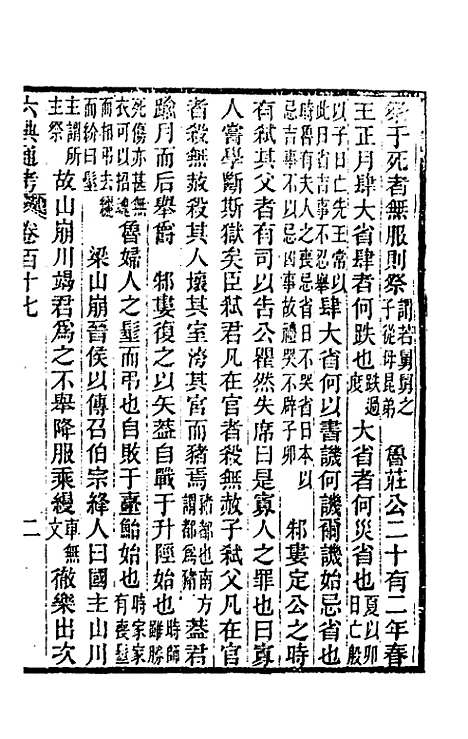 祭于死者無服則祭謂若舅舅之子從母昆弟　魯莊公二十有二年春
王正月肆大省肆者何跌也跌過度　大省者何災省也夏以卯日亡殷
以子日亡先王常以此日省吉事不忍舉肆大省何以書譏何譏爾譏始忌省也
時魯有夫人之喪忌省日不哭省日本以忌吉事不忌凶事故禮哭不辟子卯　邾婁定公之時
有弒其父者有司以告公瞿然失席曰是寡人之罪也曰寡
人嘗學斷斯獄矣臣弒君凡在官者殺無赦子弒父凡在官
者殺無赦殺其人壞其室洿其宮而豬焉豬都也南方謂都為豬葢君
踰月而后舉爵　邾婁復之以矢葢自戰于升陘始也時師雖勝
死傷亦甚無衣可以招魂　魯婦人之髽而弔也自敗于臺鮐始也時家家有喪髽
而相弔去纚而紒曰髽　梁山崩晉侯以傳召伯宗絳人曰國主山川
主謂所主祭　故山崩川竭君爲之不舉降服乘縵車無文　徹樂出次
六典通考　卷百十七　二